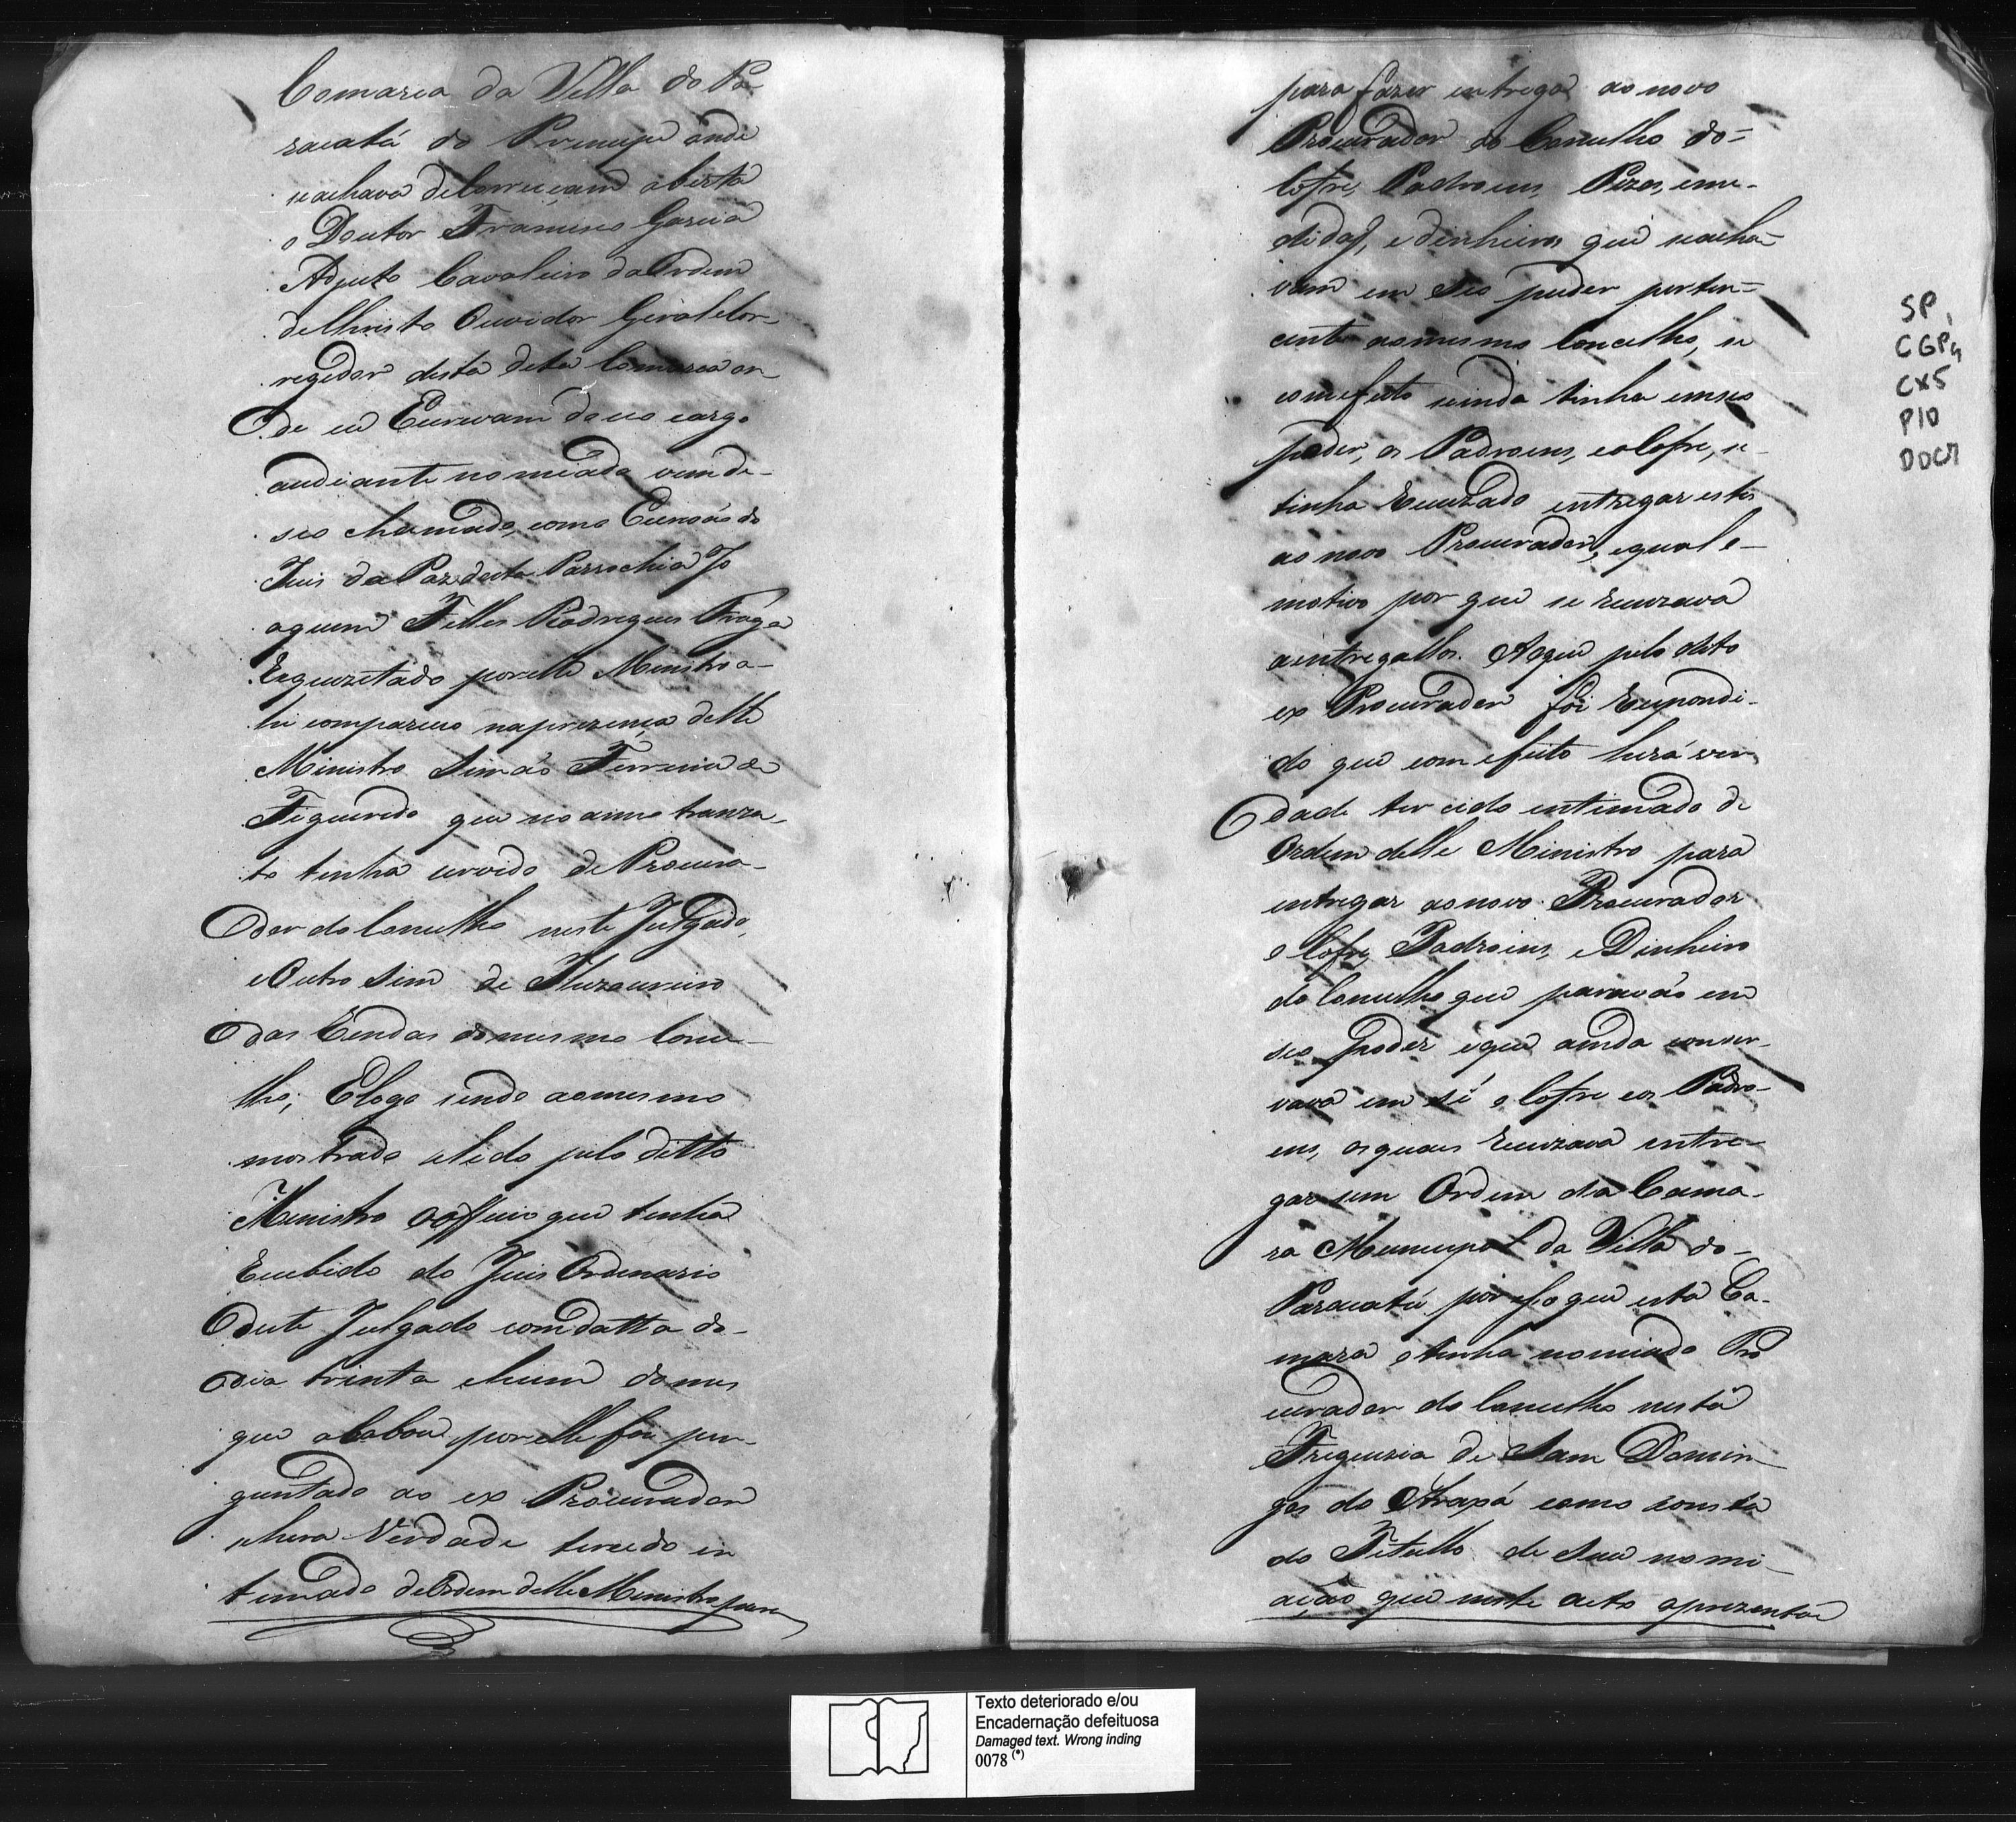 Comarca da Villa do Pa-
racatú do Principe onde
seachava deCorreiçam aberta
o Doutor Francisco Garcia
Adjuto Cavaleiro daOrdem
deChristo Ouvidor Geral eCor-
regedor desta dita Comarca on-
de eu Escrivam do seo cargo
andiante nomeado vim de
seo chamado, como Escrivão do
Juis da Paz desta Parrochia Jo
aquim Telles Rodrigues Fraga
Requizitado porelle Ministro a-
hi compareceo naprezença delle
Ministro Simão Ferreira de
Figueredo que no anno tranza-
to tinha servido de Procura-
dor do Concelho neste Julgado,
eOutro Sim de Thezoureiro
das Rendas domesmo Conce-
lho; Elogo sendo aomesmo
mostrado elido pelo ditto
Ministro oofficio que tinha
Recebido do Juis Ordinario
deste Julgado comdatta do
dia trinta ehum domes
que acabou porelle foi per-
guntado ao ex Procurador
sehera Verdade tersido in
timado deOrdem delle Ministro para
para fazer entrega ao novo
Procurador do Concelho do
Cofre, Padroens, Pezos, eme-
didas, edinheiros que seacha-
vam em Seo puder perten-
cente aomesmo Concelho, se
comefeito ainda tinha emseo
poder, os Padroens, eoCofre, se
tinha Recuzado entregar estes
ao novo Procurador, equal o
motivo por que se recuzava
aentregallos. Aoque pelo dito
ex Procurador foi Respondi-
do que com efeito herá ver
dade ter cido intimado de
Ordem delle Ministro para
entregar aonovo Procurador
o Cofre, Padroens, eDinheiro
do Concelho que paravão em
seo poder eque ainda conser-
vava em sí o Cofre eos Padro-
ens, osquais recuzava entre-
gar sem Ordem da Cama-
ra Municipal da Villa do
Paracatú por isso que esta Ca-
mara otinha nomiado Pro
curador do Concelho nesta
Freguezia de Sam Domin
gos do Araxá como consta
do Titullo de Sua nomi-
ação que neste acto aprezentou
SP
CGP4
CX5
P10
DOC7
Texto deteriorado e/ou
Encadernação defeituosa
Damaged text. Wrong inding
0078 (*)